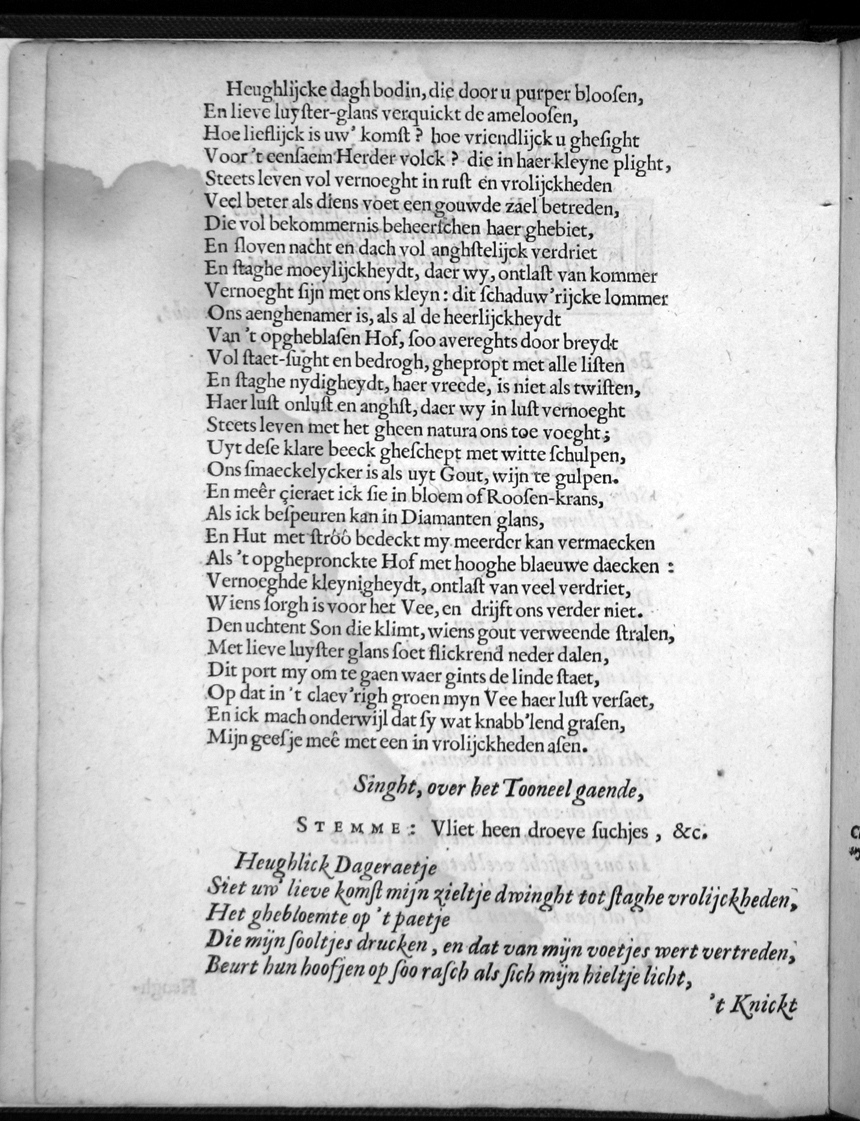 Heughlijcke dagh bodin, die door u purper blooſen,
En lieve luyſter-glans verquickt de amelooſen,
Hoe lieflijck is uw' komſt ? hoe vriendlijck u gheſight
Voor 't eenſaem Herder volck ? die in haer kleyne plight,
Steets leven vol vernoeght in ruſt en vrolijckheden
Veel beter als diens voet een gouwde zael betreden,
Die vol bekommernis beheerſchen haer ghebiet,
En ſloven nacht en dach vol anghſtelijck verdriet
En ſtaghe moeylijckheydt, daer wy, ontlaſt van kommer
Vernoeght ſijn met ons kleyn : dit ſchaduw'rijcke lommer
Ons aenghenamer is, als al de heerlijckheydt
Van 't opgheblaſen Hof, ſoo avereghts door breydt
Vol ſtaet-ſught en bedrogh, ghepropt met alle liſten
En ſtaghe nydigheydt, haer vreede, is niet als twiſten,
Haer luſt onluſt en anghſt, daer wy in luſt vernoeght
Steets leven met het gheen natura ons toe voeght ;
Uyt deſe klare beeck gheſchept met witte ſchulpen,
Ons ſmaeckelycker is als uyt Gout, wijn te gulpen.
En meêr çieraet ick ſie in bloem of Rooſen-krans,
Als ick beſpeuren kan in Diamanten glans,
En Hut met ſtrôô bedeckt my meerder kan vermaecken
Als 't opghepronckte Hof met hooghe blaeuwe daecken :
Vernoeghde kleynigheydt, ontlaſt van veel verdriet,
Wiens ſorgh is voor het Vee, en drijft ons verder niet.
Den uchtent Son die klimt, wiens gout verweende ſtralen,
Met lieve luyſter glans ſoet flickrend neder dalen,
Dit port my om te gaen waer gints de linde ſtaet,
Op dat in 't claev'righ groen myn Vee haer luſt verſaet,
En ick mach onderwijl dat ſy wat knabb'lend graſen,
Mijn geeſje meê met een in vrolijckheden aſen.
Singht, over het Tooneel gaende,
STEMME : Vliet heen droeve ſuchjes , &c.
Heughlick Dageraetje
Siet uw' lieve komſt mijn zieltje dwinght tot ſtaghe vrolijckheden,
Het ghebloemte op 't paetje
Die mijn ſooltjes drucken , en dat van mijn voetjes wert vertreden,
Beurt hun hoofjen op ſoo raſch als ſich mijn hieltje licht,
't Knickt